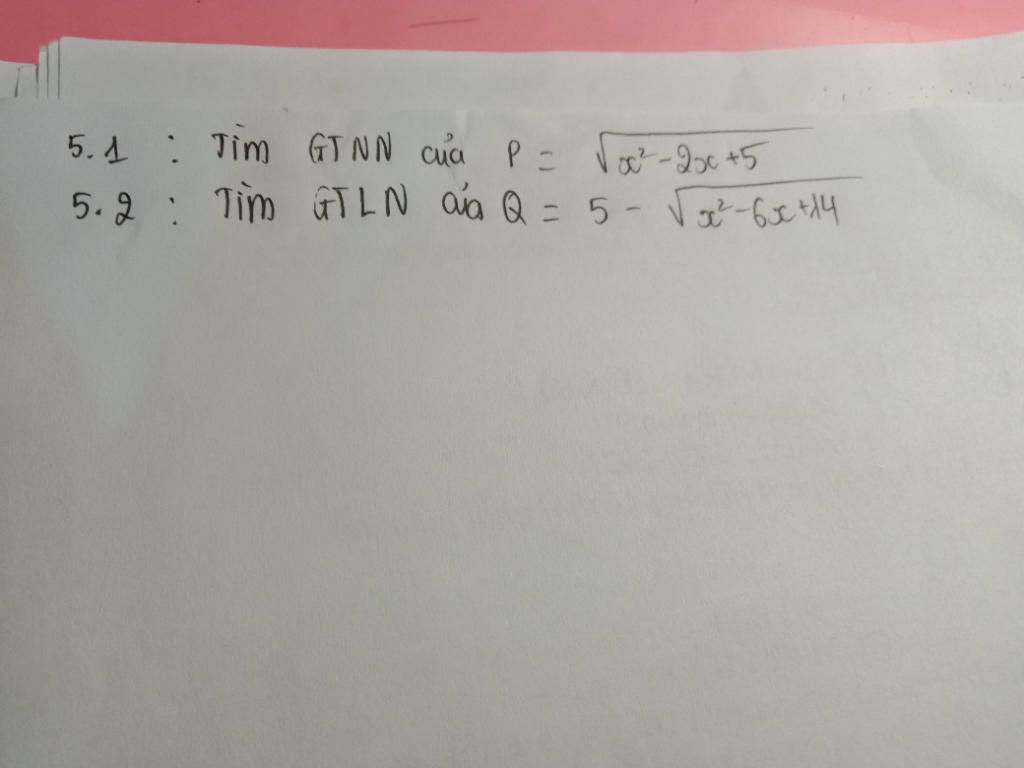 5.1 : Tìm GTNN của P = √(x² - 2x + 5)
5.2 : Tìm GTLN của Q = 5 - √(x² - 6x + 14)